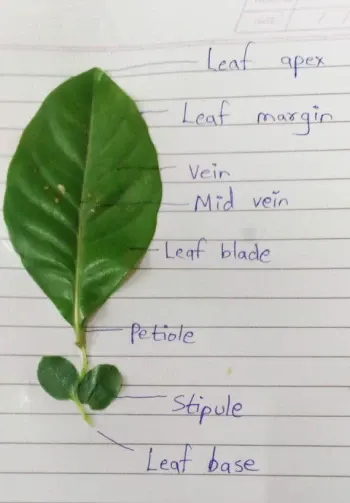 Leaf apex
Leaf margin
Vein
Mid vein
Leaf blade
Petiole
Stipule
Leaf base